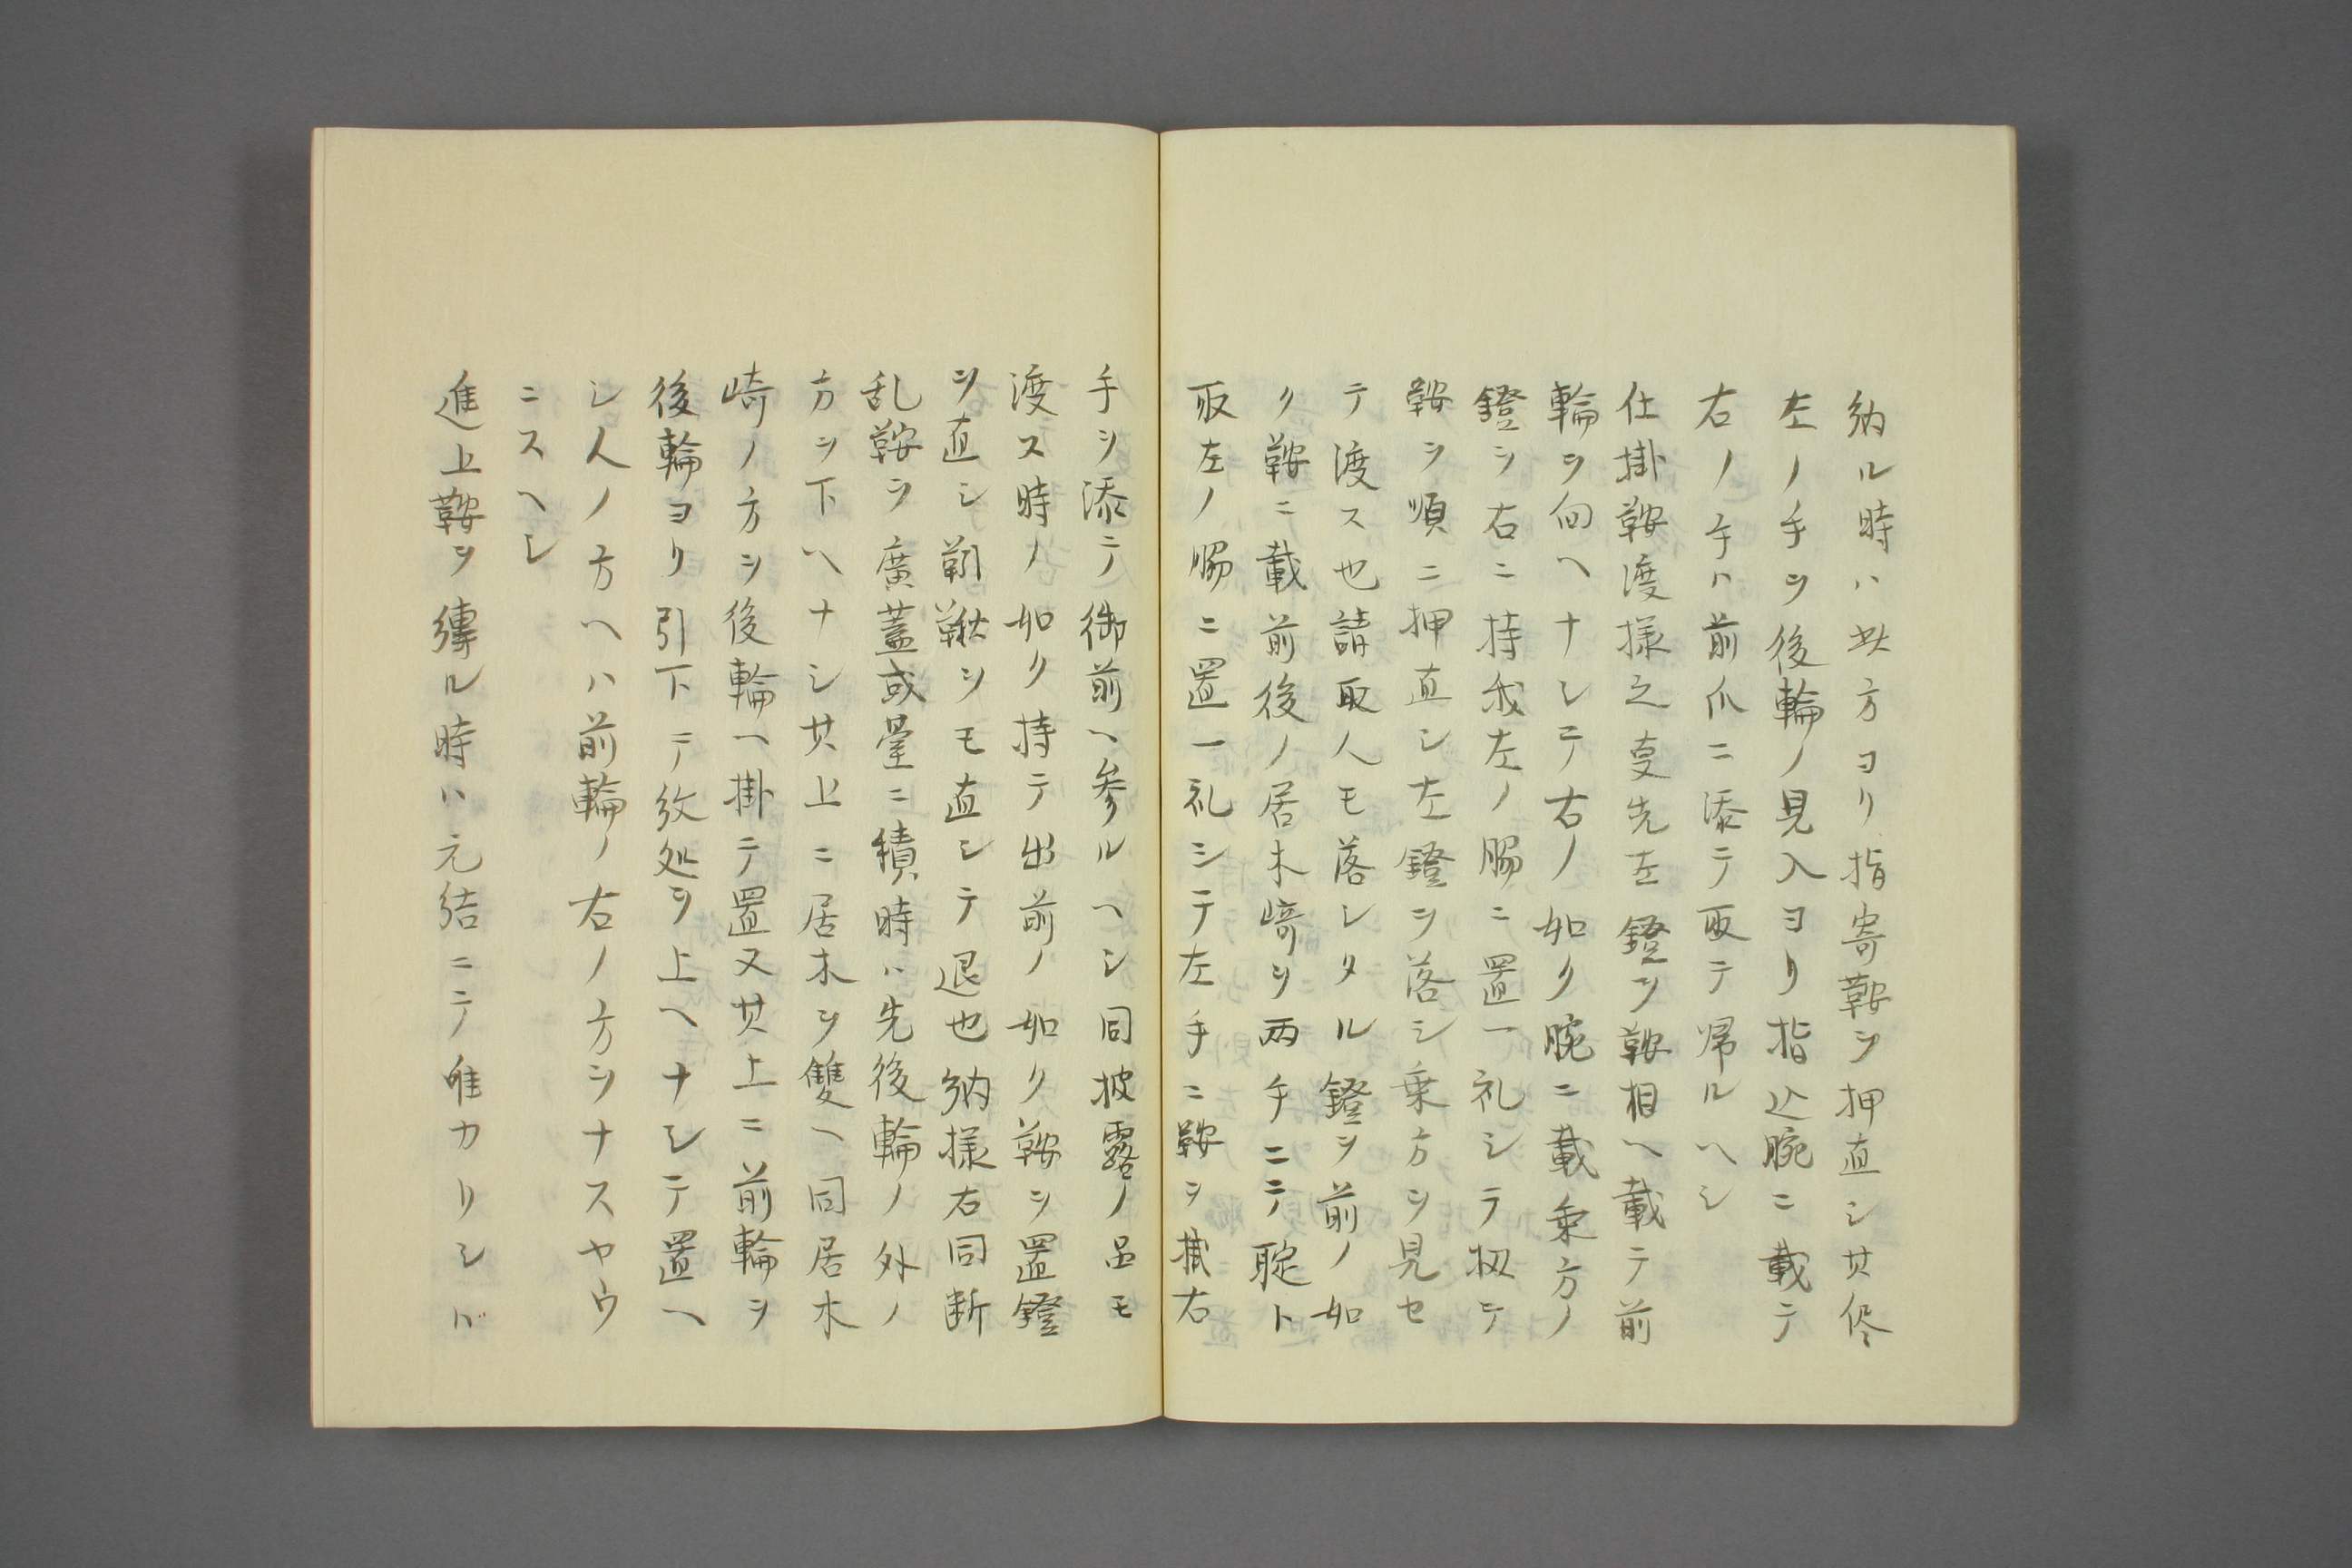 納ル時ハ此方ヨリ指寄鞍ヲ押直シ其侭
左ノ手ヲ後輪ノ見入ヨリ指込腕ニ載テ
右ノ手ハ前爪ニ添テ取テ帰ルヘシ
仕掛鞍渡様之事先左鐙ヲ鞍相ヘ載テ前
輪ヲ向ヘナシテ右ノ如ク腕ニ載乗方ノ
鐙ヲ右ニ持我左ノ脇ニ置一礼シテ扨テ
鞍ヲ順ニ押直シ左鐙ヲ落シ乗方ヲ見セ
テ渡ス也請取人モ落シタル鐙ヲ前ノ如
ク鞍ニ載前後ノ居木崎ヲ両手ニテ聢ト
取左ノ脇ニ置一礼シテ左手ニ鞍ヲ載右
手ヲ添テ御前ヘ参ルヘシ同披露ノ品モ
渡ス時ノ如ク持テ出前ノ如ク鞍ヲ置鐙
ヲ直シ鞦ヲモ直シテ退也納様右同断
乱鞍ヲ廣蓋或臺ニ積時ハ先後輪ノ外ノ
方ヲ下ヘナシ其上ニ居木ヲ雙ヘ同居木
崎ノ方ヲ後輪ヘ掛テ置又其上ニ前輪ヲ
後輪ヨリ引下テ紋処ヲ上ヘナシテ置ヘ
シ人ノ方ヘハ前輪ノ右ノ方ヲナスヤウ
ニスヘシ
進上鞍ヲ縛ル時ハ元結ニテ唯カリシバ